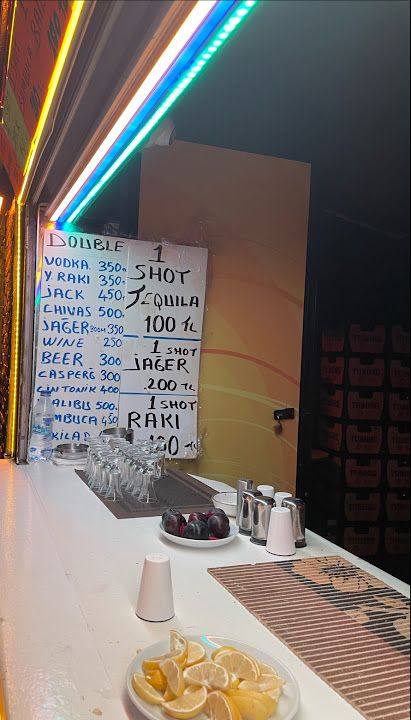 DOUBLE
VODKA 350
Y RAKI 350
JACK 450
CHIVAS 500
JAGER BOOM 350
WINE 250
BEER 300
CASPERS 300
GIN TONIK 400
ALIBU 500
MBUCA 450
KILAD
1
SHOT
TEQUILA
100 TL
1 SHOT
JAGER
200 TL
1 SHOT
RAKI
TUBORG
TUBORG